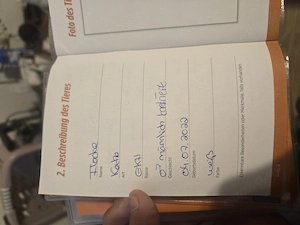 Foto des Ti
2. Beschreibung des Tieres
Flocke
Name
Katze
Art
EKH
Rasse
♂ männlich kastriert
Geschlecht
04.07.2022
Geburtsdatum
weiß
Farbe